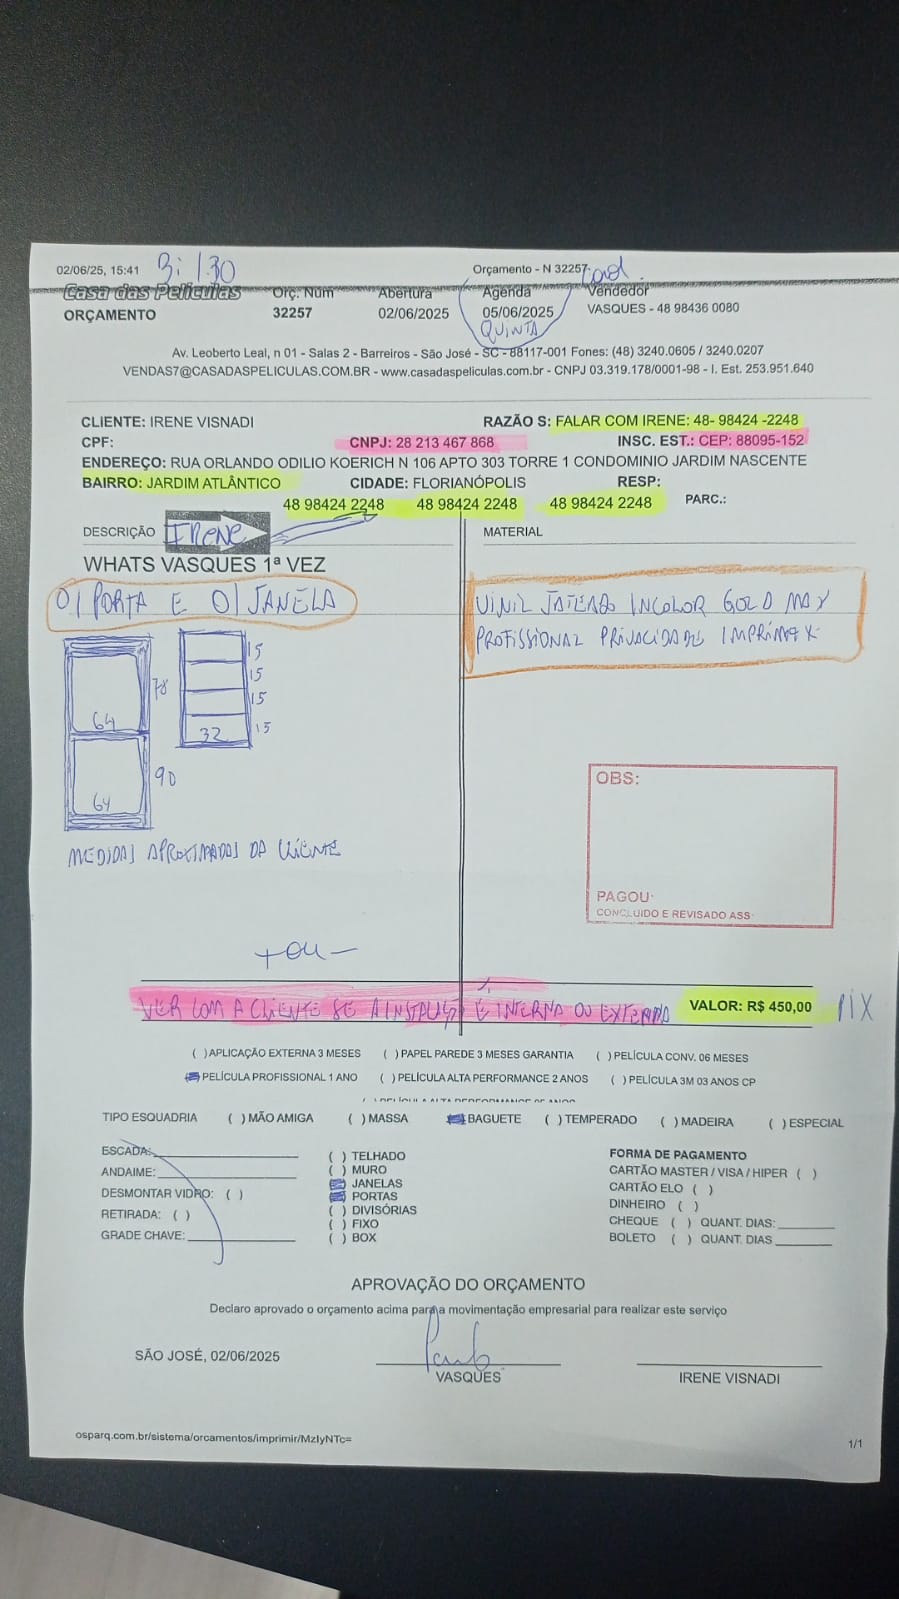 02/06/25, 15:41
Orçamento - N 32257
Casa das Películas
ORÇAMENTO
Orç. Num
32257
Abertura
02/06/2025
Agenda
05/06/2025
QUINTA
Vendedor
VASQUES - 48 98436 0080
Av. Leoberto Leal, n 01 - Salas 2 - Barreiros - São José - SC - 88117-001 Fones: (48) 3240.0605 / 3240.0207
VENDAS7@CASADASPELICULAS.COM.BR - www.casadaspeliculas.com.br - CNPJ 03.319.178/0001-98 - I. Est. 253.951.640
CLIENTE: IRENE VISNADI RAZÃO S: FALAR COM IRENE: 48- 98424 -2248
CPF: CNPJ: 28 213 467 868 INSC. EST.: CEP: 88095-152
ENDEREÇO: RUA ORLANDO ODILIO KOERICH N 106 APTO 303 TORRE 1 CONDOMINIO JARDIM NASCENTE
BAIRRO: JARDIM ATLÂNTICO CIDADE: FLORIANÓPOLIS RESP:
48 98424 2248 48 98424 2248 48 98424 2248 PARC.:
DESCRIÇÃO IRENE MATERIAL
WHATS VASQUES 1ª VEZ
01 PORTA E 01 JANELA
VINIL JATEADO INCOLOR GOLD MAX
PROFISSIONAL PRIVACIDADE IMPRIMAX
15
15
78
15
64
32
15
90
64
MEDIDAS APROXIMADAS DA CLIENTE
OBS:
PAGOU:
CONCLUIDO E REVISADO ASS:
+ OU -
VER COM A CLIENTE SE A INSTALAÇÃO É INTERNA OU EXTERNA VALOR: R$ 450,00 PIX
( ) APLICAÇÃO EXTERNA 3 MESES ( ) PAPEL PAREDE 3 MESES GARANTIA ( ) PELÍCULA CONV. 06 MESES
PELÍCULA PROFISSIONAL 1 ANO ( ) PELÍCULA ALTA PERFORMANCE 2 ANOS ( ) PELÍCULA 3M 03 ANOS CP
TIPO ESQUADRIA ( ) MÃO AMIGA ( ) MASSA BAGUETE ( ) TEMPERADO ( ) MADEIRA ( ) ESPECIAL
ESCADA:
ANDAIME:
DESMONTAR VIDRO: ( )
RETIRADA: ( )
GRADE CHAVE:
( ) TELHADO
( ) MURO
JANELAS
PORTAS
( ) DIVISÓRIAS
( ) FIXO
( ) BOX
FORMA DE PAGAMENTO
CARTÃO MASTER / VISA / HIPER ( )
CARTÃO ELO ( )
DINHEIRO ( )
CHEQUE ( ) QUANT. DIAS:
BOLETO ( ) QUANT. DIAS
APROVAÇÃO DO ORÇAMENTO
Declaro aprovado o orçamento acima para a movimentação empresarial para realizar este serviço
SÃO JOSÉ, 02/06/2025
VASQUES
IRENE VISNADI
osparq.com.br/sistema/orcamentos/imprimir/MzIyNTc=
1/1